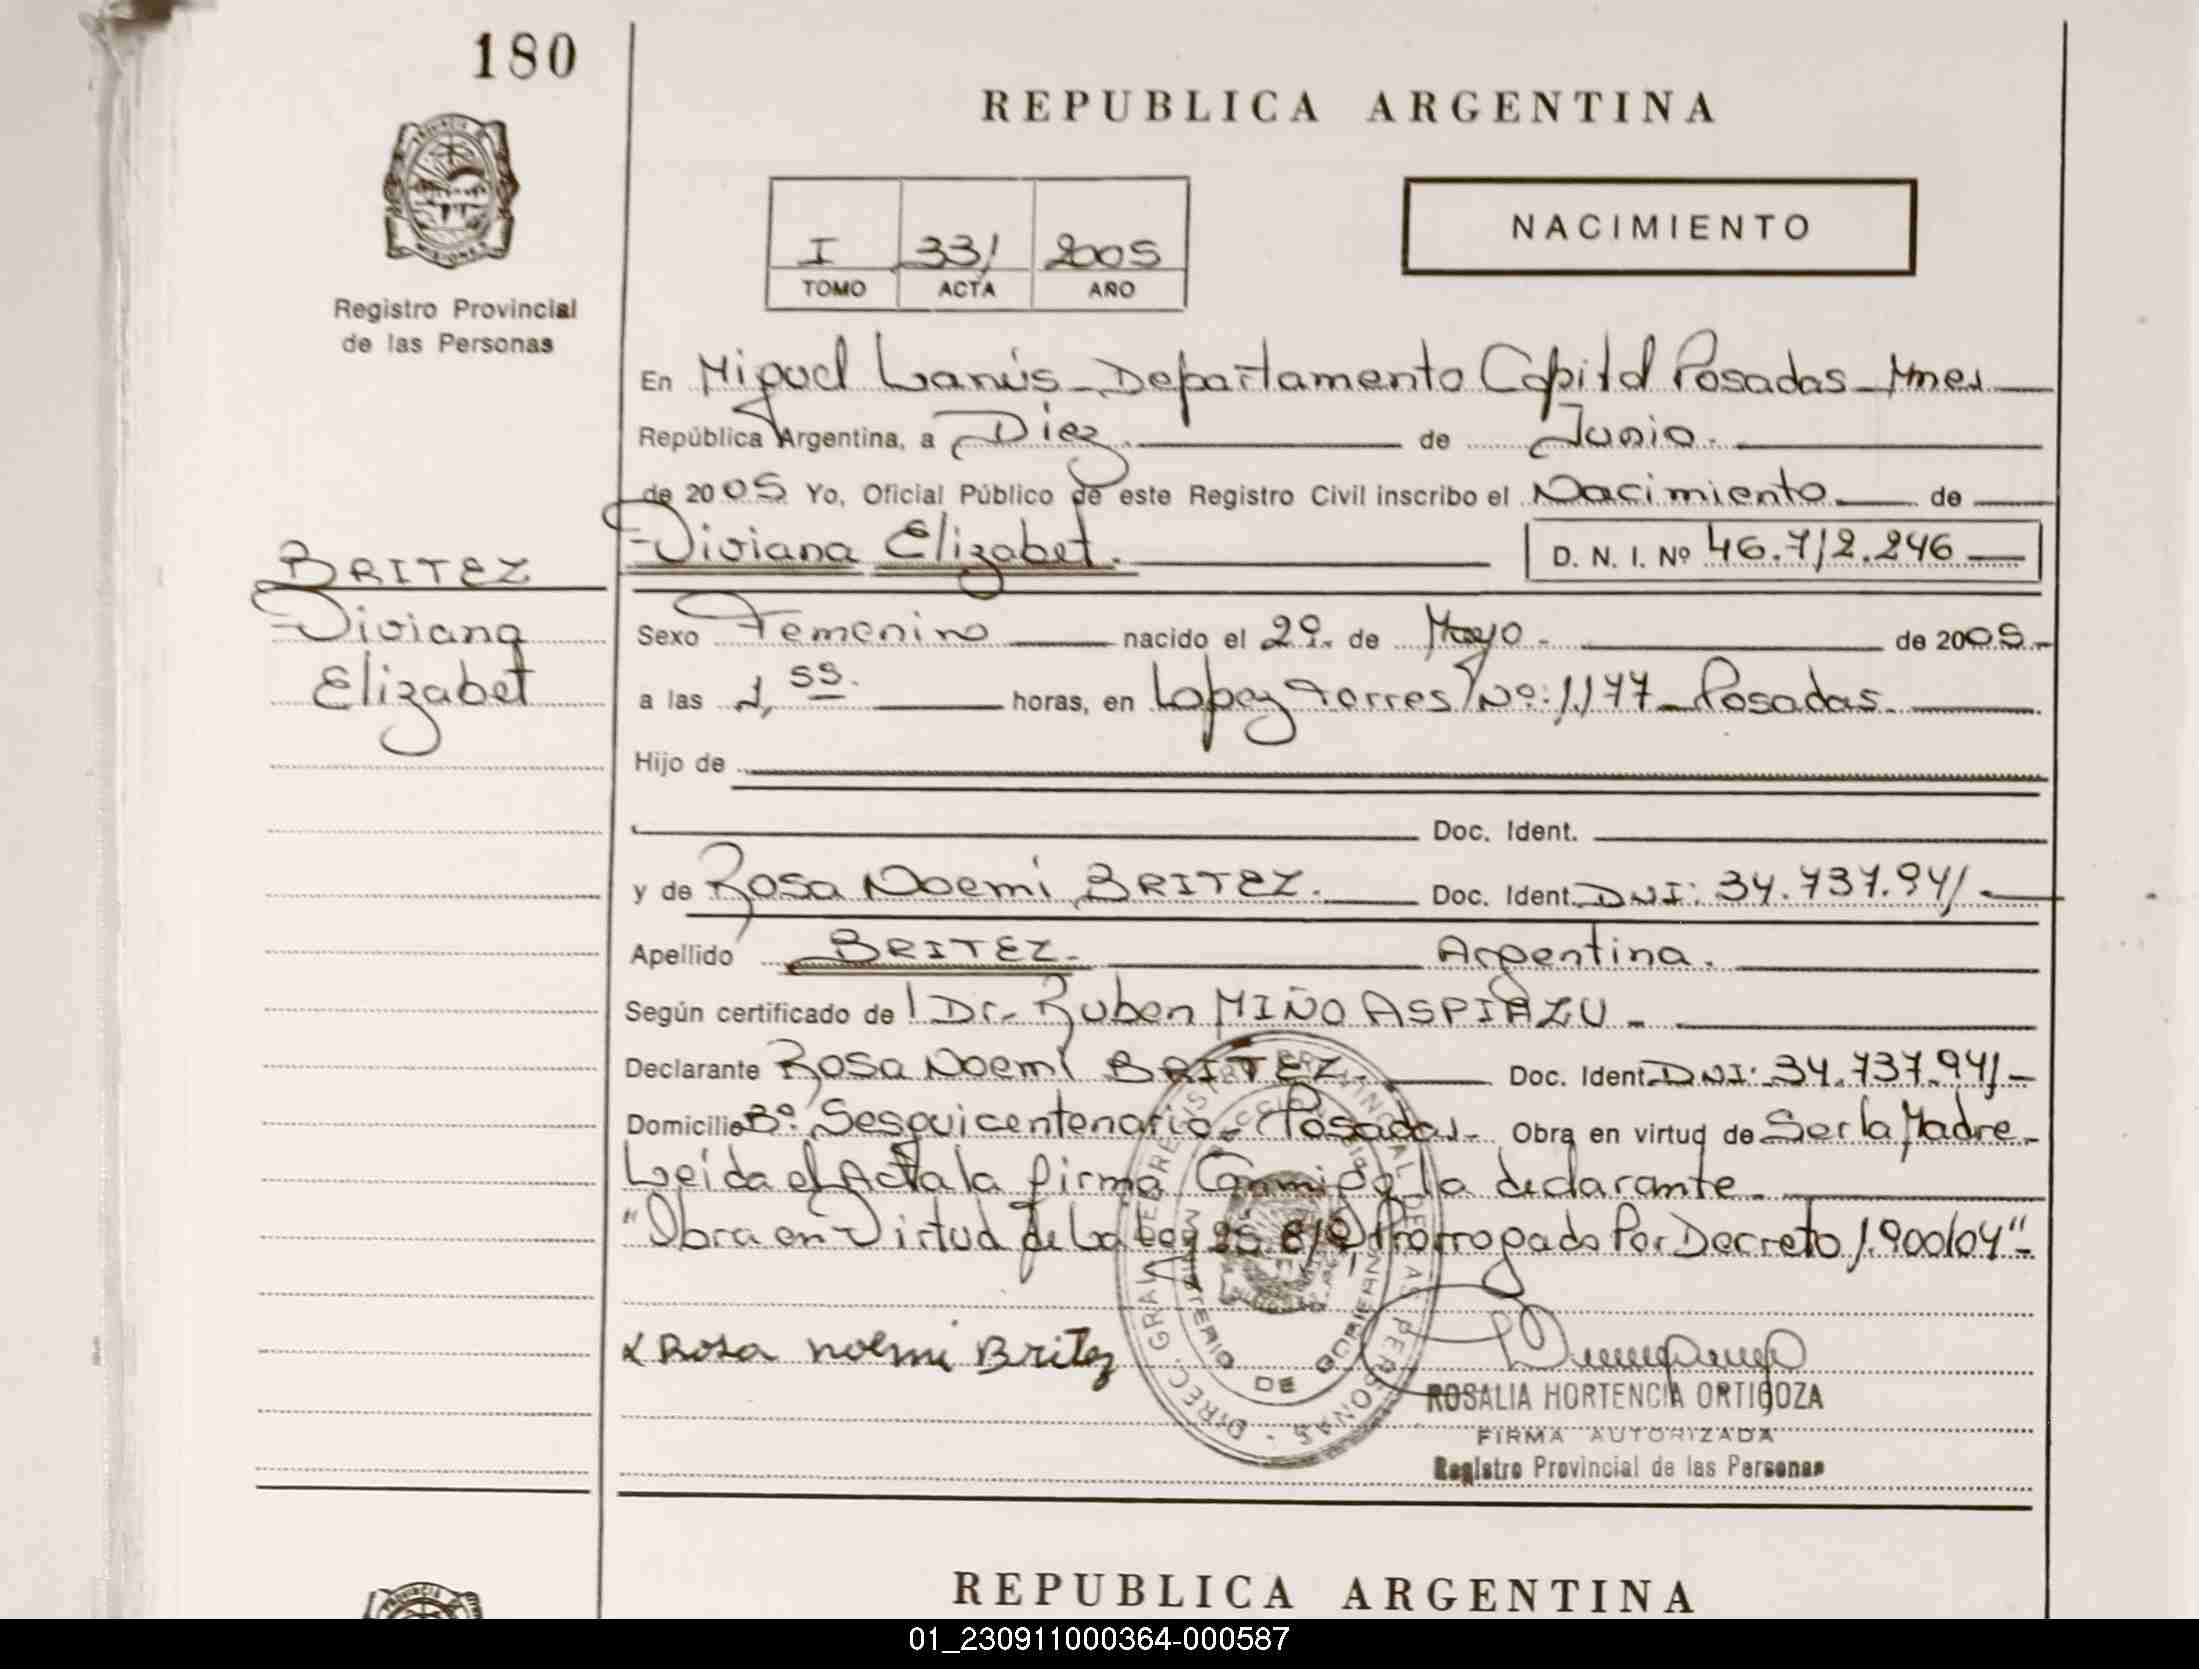 180
REPUBLICA ARGENTINA
PROVINCIA DE MISIONES
I 331 2005
TOMO ACTA AÑO
NACIMIENTO
Registro Provincial
de las Personas
En Miguel Lanús - Departamento Capital Posadas - Mnes
República Argentina, a Diez. de Junio.
de 2005 Yo, Oficial Público de este Registro Civil inscribo el Nacimiento de
Viviana Elizabet. D. N. I. Nº 46.712.246
BRITEZ
Viviana
Elizabet
Sexo Femenino nacido el 29. de Mayo - de 2005.-
a las 1,55. horas, en Lopez Torres Nº: 1.177 - Posadas.
Hijo de
Doc. Ident.
y de Rosa Noemi BRITEZ. Doc. Ident. DNI: 34.737.941.-
Apellido BRITEZ.- Argentina.
Según certificado de Dr. Ruben MIÑO ASPIAZU -
Declarante Rosa Noemi BRITEZ. Doc. Ident. DNI: 34.737.941-
Domicilio Bº. Sesquicentenario - Posadas.- Obra en virtud de Ser la Madre.-
Leida el Acta la firma Conmigo la declarante.
"Obra en Virtud de La Ley 25.819 Prorrogado Por Decreto 1.900/04"-
x Rosa noemi Britez
DIREC. GRAL. DE REGISTRO PROVINCIAL DE LAS PERSONAS
MINISTERIO DE GOBIERNO
ROSALIA HORTENCIA ORTIGOZA
FIRMA AUTORIZADA
Registro Provincial de las Personas
REPUBLICA ARGENTINA
01_230911000364-000587